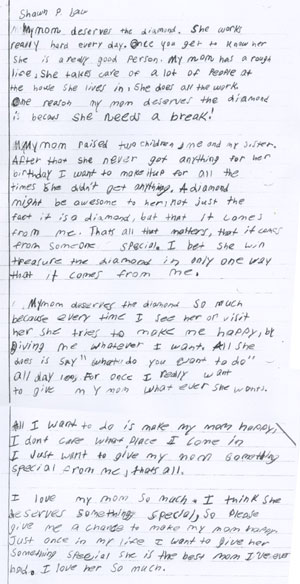 Shawn P. Law
My mom deserves the diamond. She works
really hard every day. Once you get to know her
she is a really good person. My mom has a rough
life. She takes care of a lot of people at
the house she lives in. She does all the work.
One reason my mom deserves the diamond
is becaus she needs a break!
My mom raised two children, me and my sister.
After that she never got anything for her
birthday I want to make it up for all the
times she didn't get anything. A diamond
might be awesome to her, not just the
fact it is a diamond, but that it comes
from me. Thats all that matters, that it comes
from someone special. I bet she win
treasure the diamond in only one way
that it comes from me.
My mom deserves the diamond so much
because every time I see her or visit
her she tries to make me happy, by
giving me whatever I want. All she
does is say "what do you want to do"
all day long. For once I really want
to give my mom what ever she wants.
All I want to do is make my mom happy,
I dont care what place I come in
I just want to give my mom something
special from me, thats all.
I love my mom so much. I think she
deserves something special, so please
give me a chance to make my mom happy
Just once in my life I want to give her
something special she is the best mom I've ever
had. I love her so much.